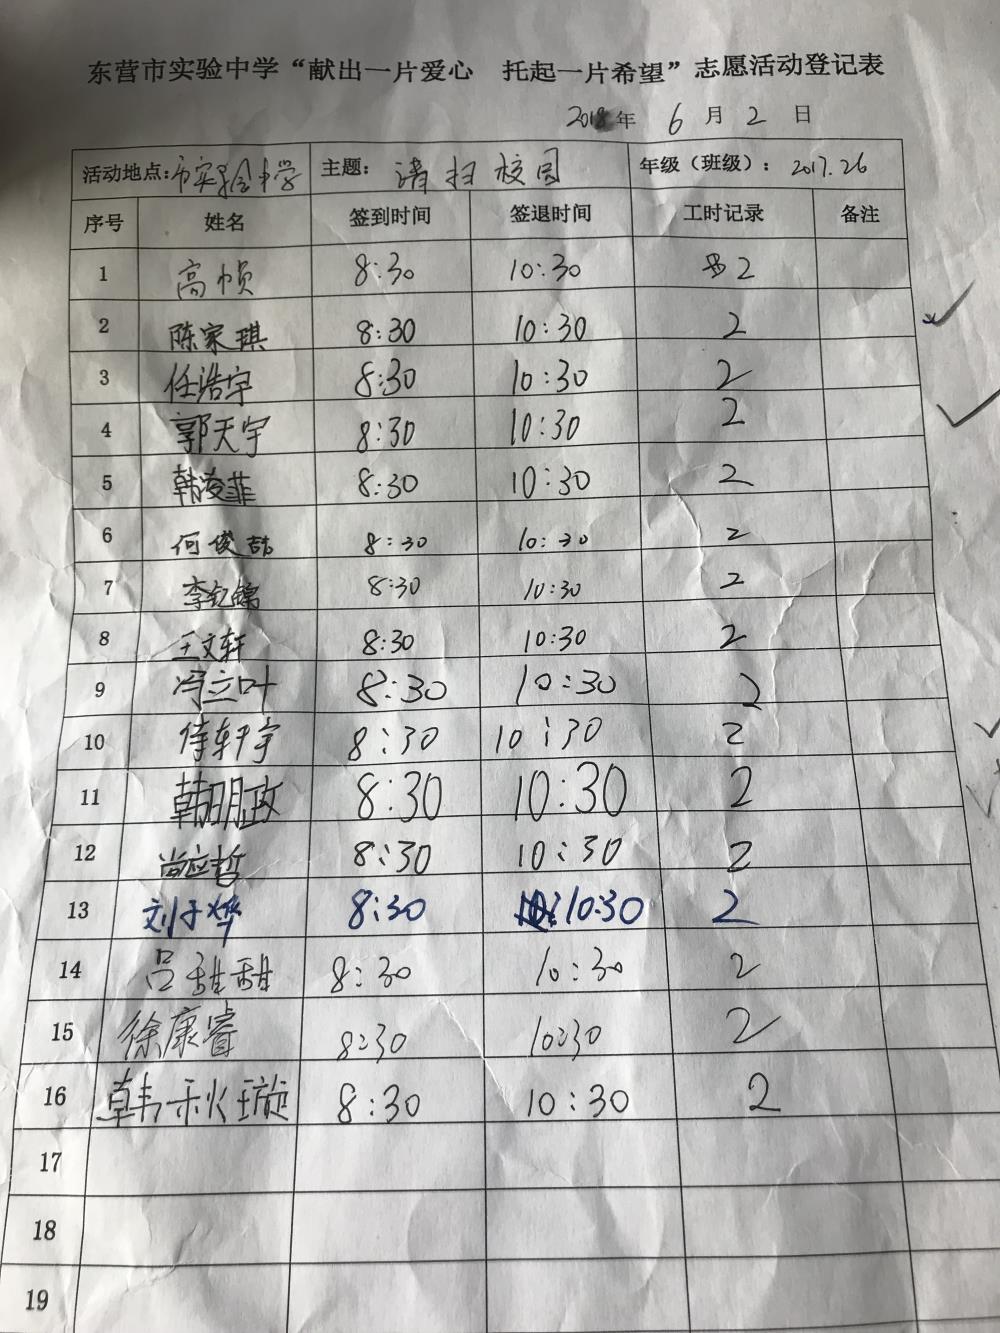 东营市实验中学“献出一片爱心 托起一片希望”志愿活动登记表
2018年 6月 2日
活动地点:市实验中学 主题: 清扫校园 年级(班级): 2017.26
序号 姓名 签到时间 签退时间 工时记录 备注
1 高帧 8:30 10:30 2
2 陈家琪 8:30 10:30 2
3 任浩宇 8:30 10:30 2
4 郭天宇 8:30 10:30 2
5 韩凌菲 8:30 10:30 2
6 何俊喆 8:30 10:30 2
7 李钇锦 8:30 10:30 2
8 王文轩 8:30 10:30 2
9 冯立叶 8:30 10:30 2
10 轩宇 8:30 10:30 2
11 韩明政 8:30 10:30 2
12 尚应哲 8:30 10:30 2
13 刘子烨 8:30 10:30 2
14 吕甜甜 8:30 10:30 2
15 徐康睿 8:30 10:30 2
16 韩秋璇 8:30 10:30 2
17
18
19